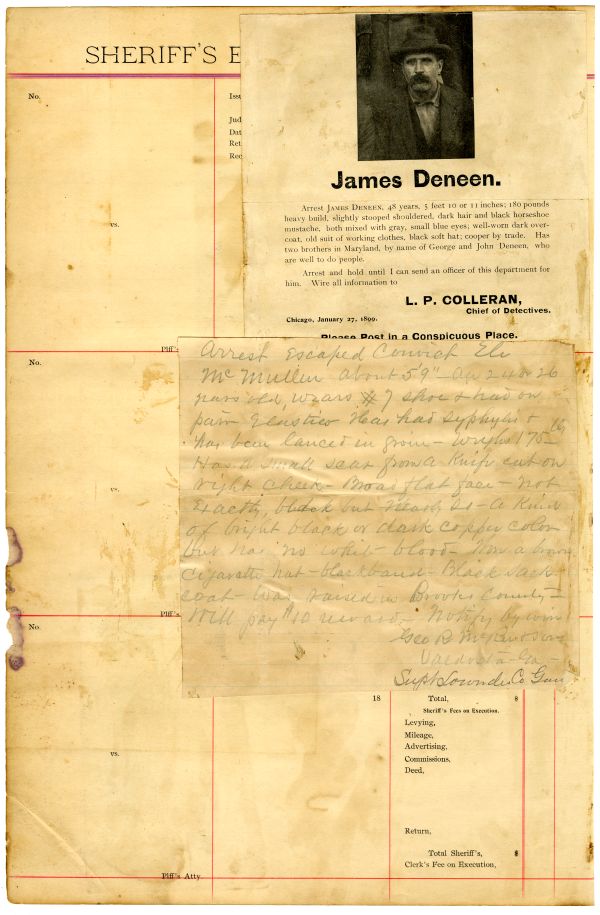 SHERIFF'S E
No.
Issu
Jud
Dat
Ret
Rec
vs.
Plff's
James Deneen.
Arrest JAMES DENEEN, 48 years, 5 feet 10 or 11 inches; 180 pounds
heavy build, slightly stooped shouldered, dark hair and black horseshoe
mustache, both mixed with gray, small blue eyes; well-worn dark over-
coat, old suit of working clothes, black soft hat; cooper by trade. Has
two brothers in Maryland, by name of George and John Deneen, who
are well to do people.
Arrest and hold until I can send an officer of this department for
him. Wire all information to
L. P. COLLERAN,
Chief of Detectives.
Chicago, January 27, 1899.
Please Post in a Conspicuous Place.
Arrest Escaped Convict Eli
McMullen about 5'9" - Age 24 or 26
years old, wears #7 shoe & had on
pair Elastics Has had syphylis &
has been lanced in groin - Weighs 175 lbs
Has a small scar from a Knife cut on
right cheek - Broad flat face - not
Exactly black but nearly so - A Kind
of bright black or dark copper color
but has no white blood - Wore a brown
cigarette hat - black band - Black sack
coat - Was raised in Brooks County -
Will pay $10 reward. - Notify by wire
Geo R
Valdosta - Ga -
Supt Lowndes Co Gang
No.
vs.
Plff's
No.
vs.
Plff's Atty.
18
Total, $
Sheriff's Fees on Execution.
Levying,
Mileage,
Advertising,
Commissions,
Deed,
Return,
Total Sheriff's, $
Clerk's Fee on Execution,